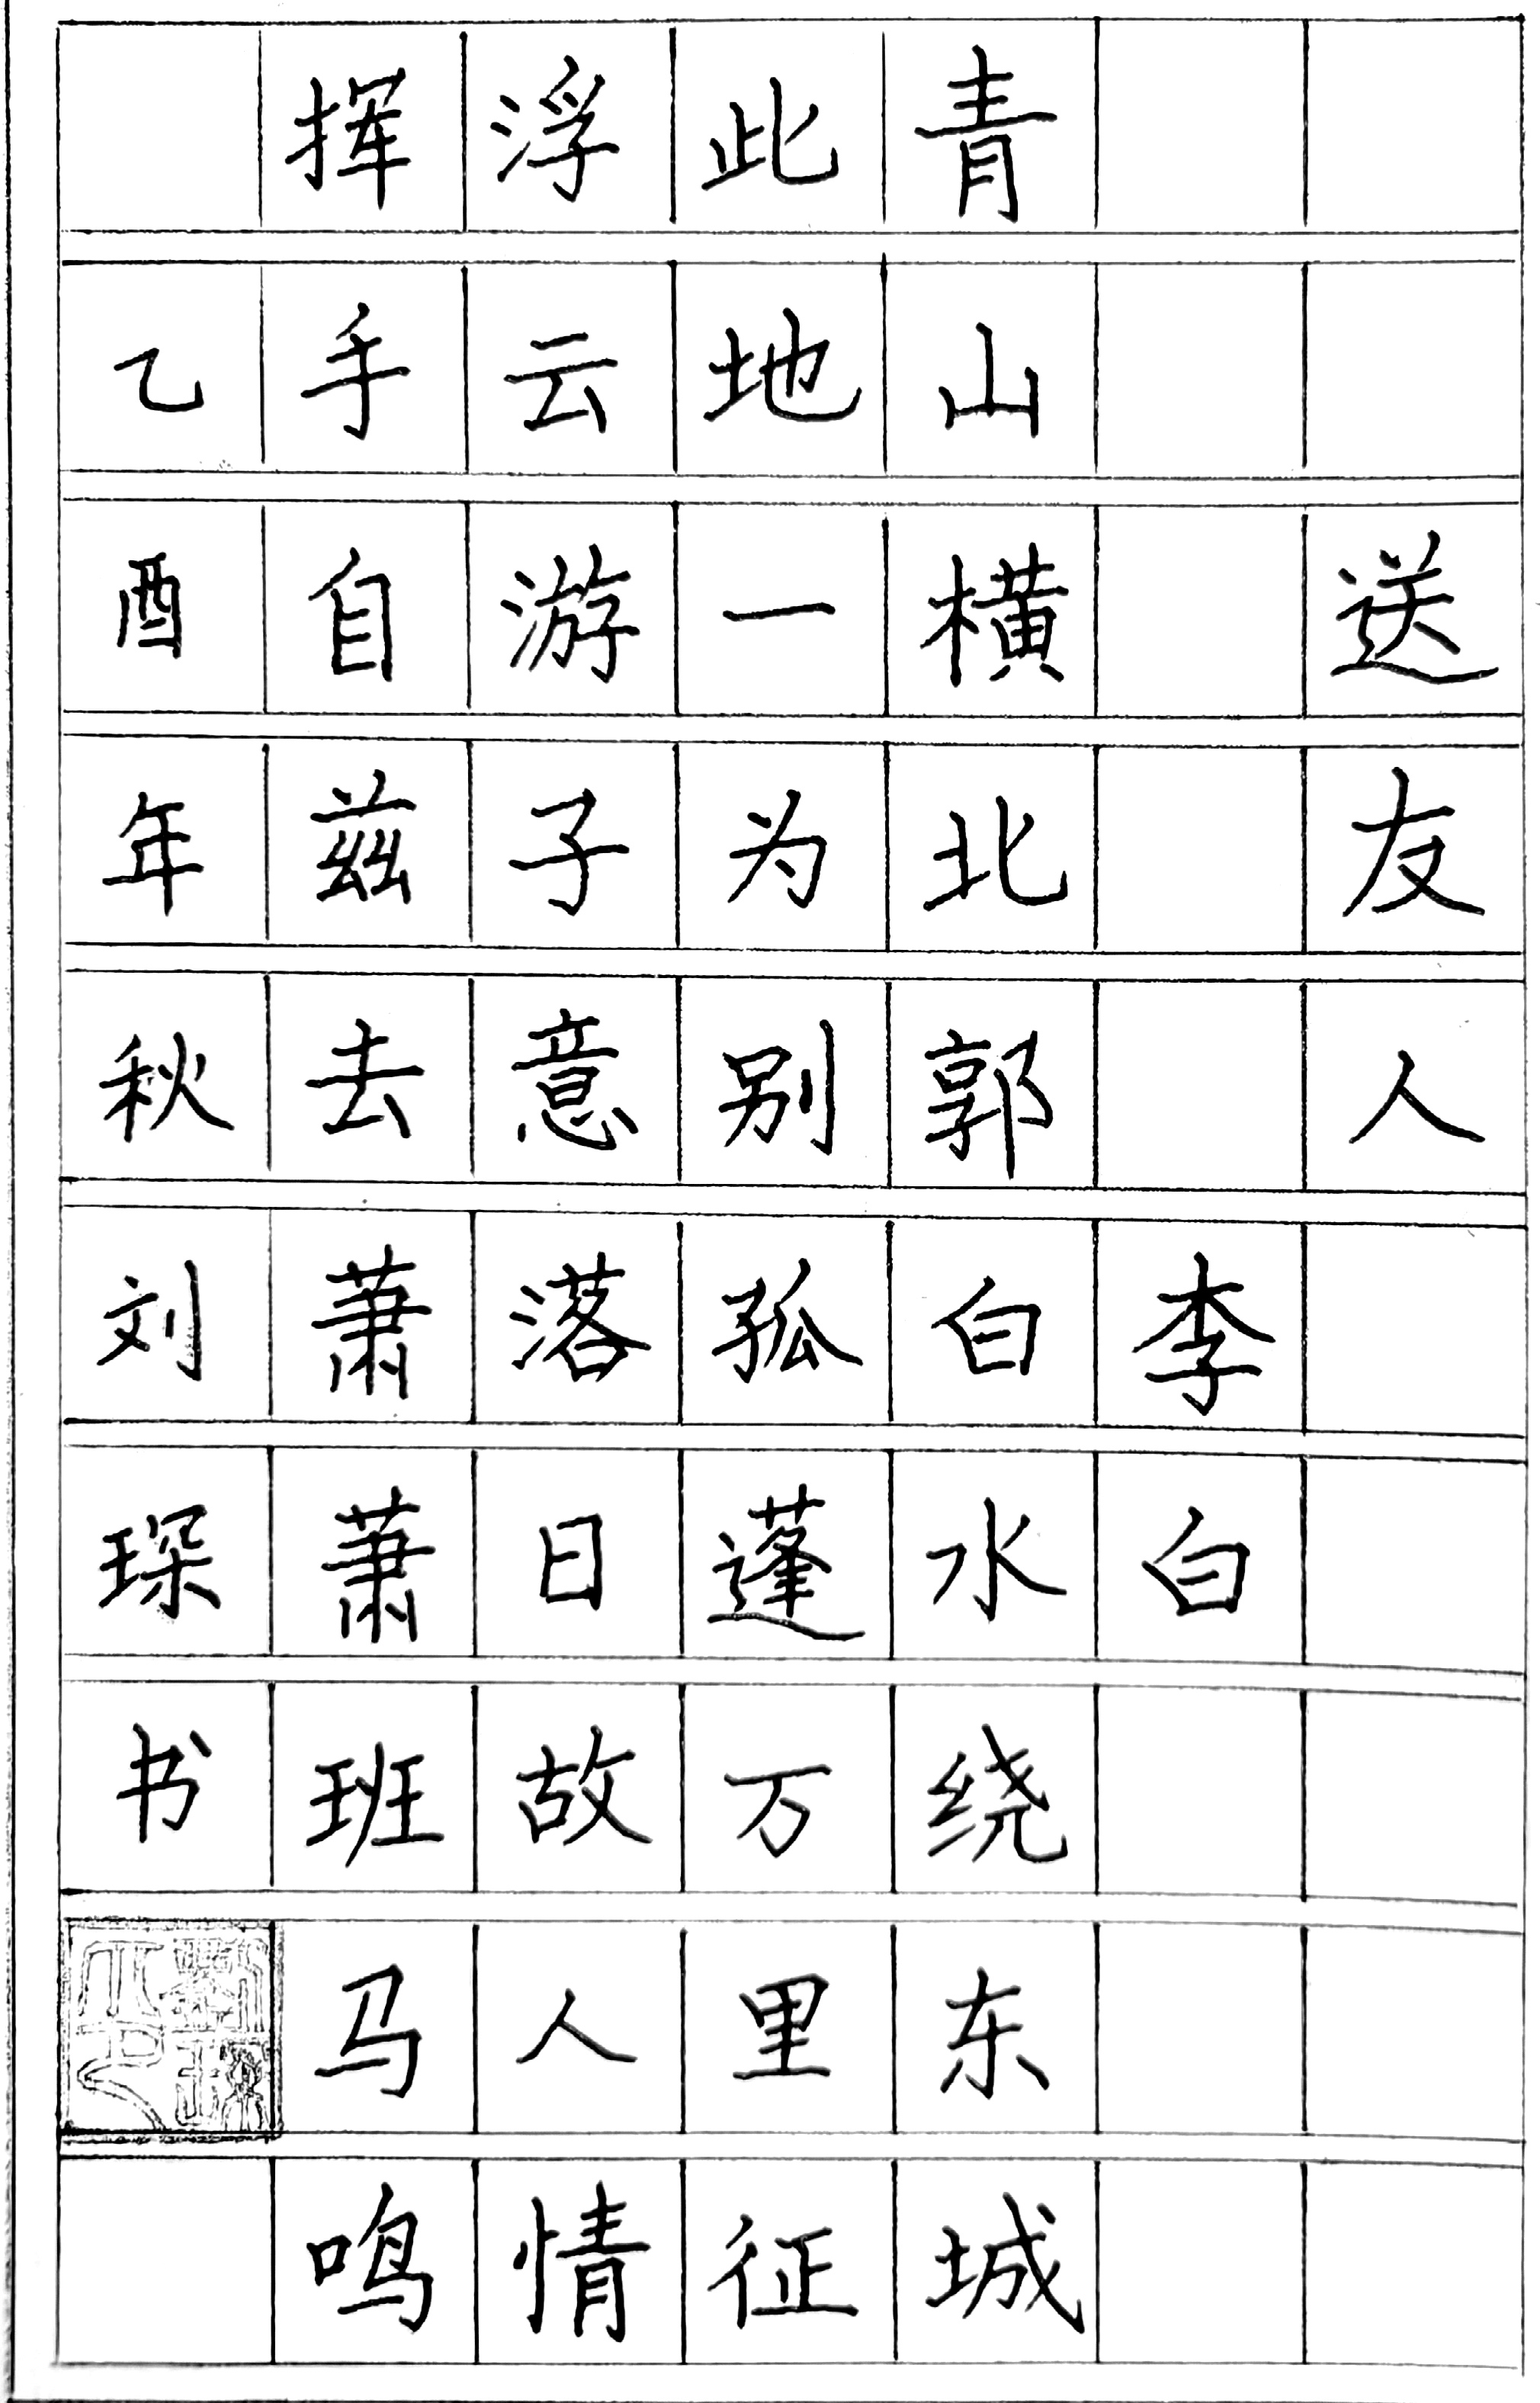 送友人
李白
青山横北郭白水绕东城
此地一为别孤蓬万里征
浮云游子意落日故人情
挥手自兹去萧萧班马鸣
乙酉年秋刘琛书